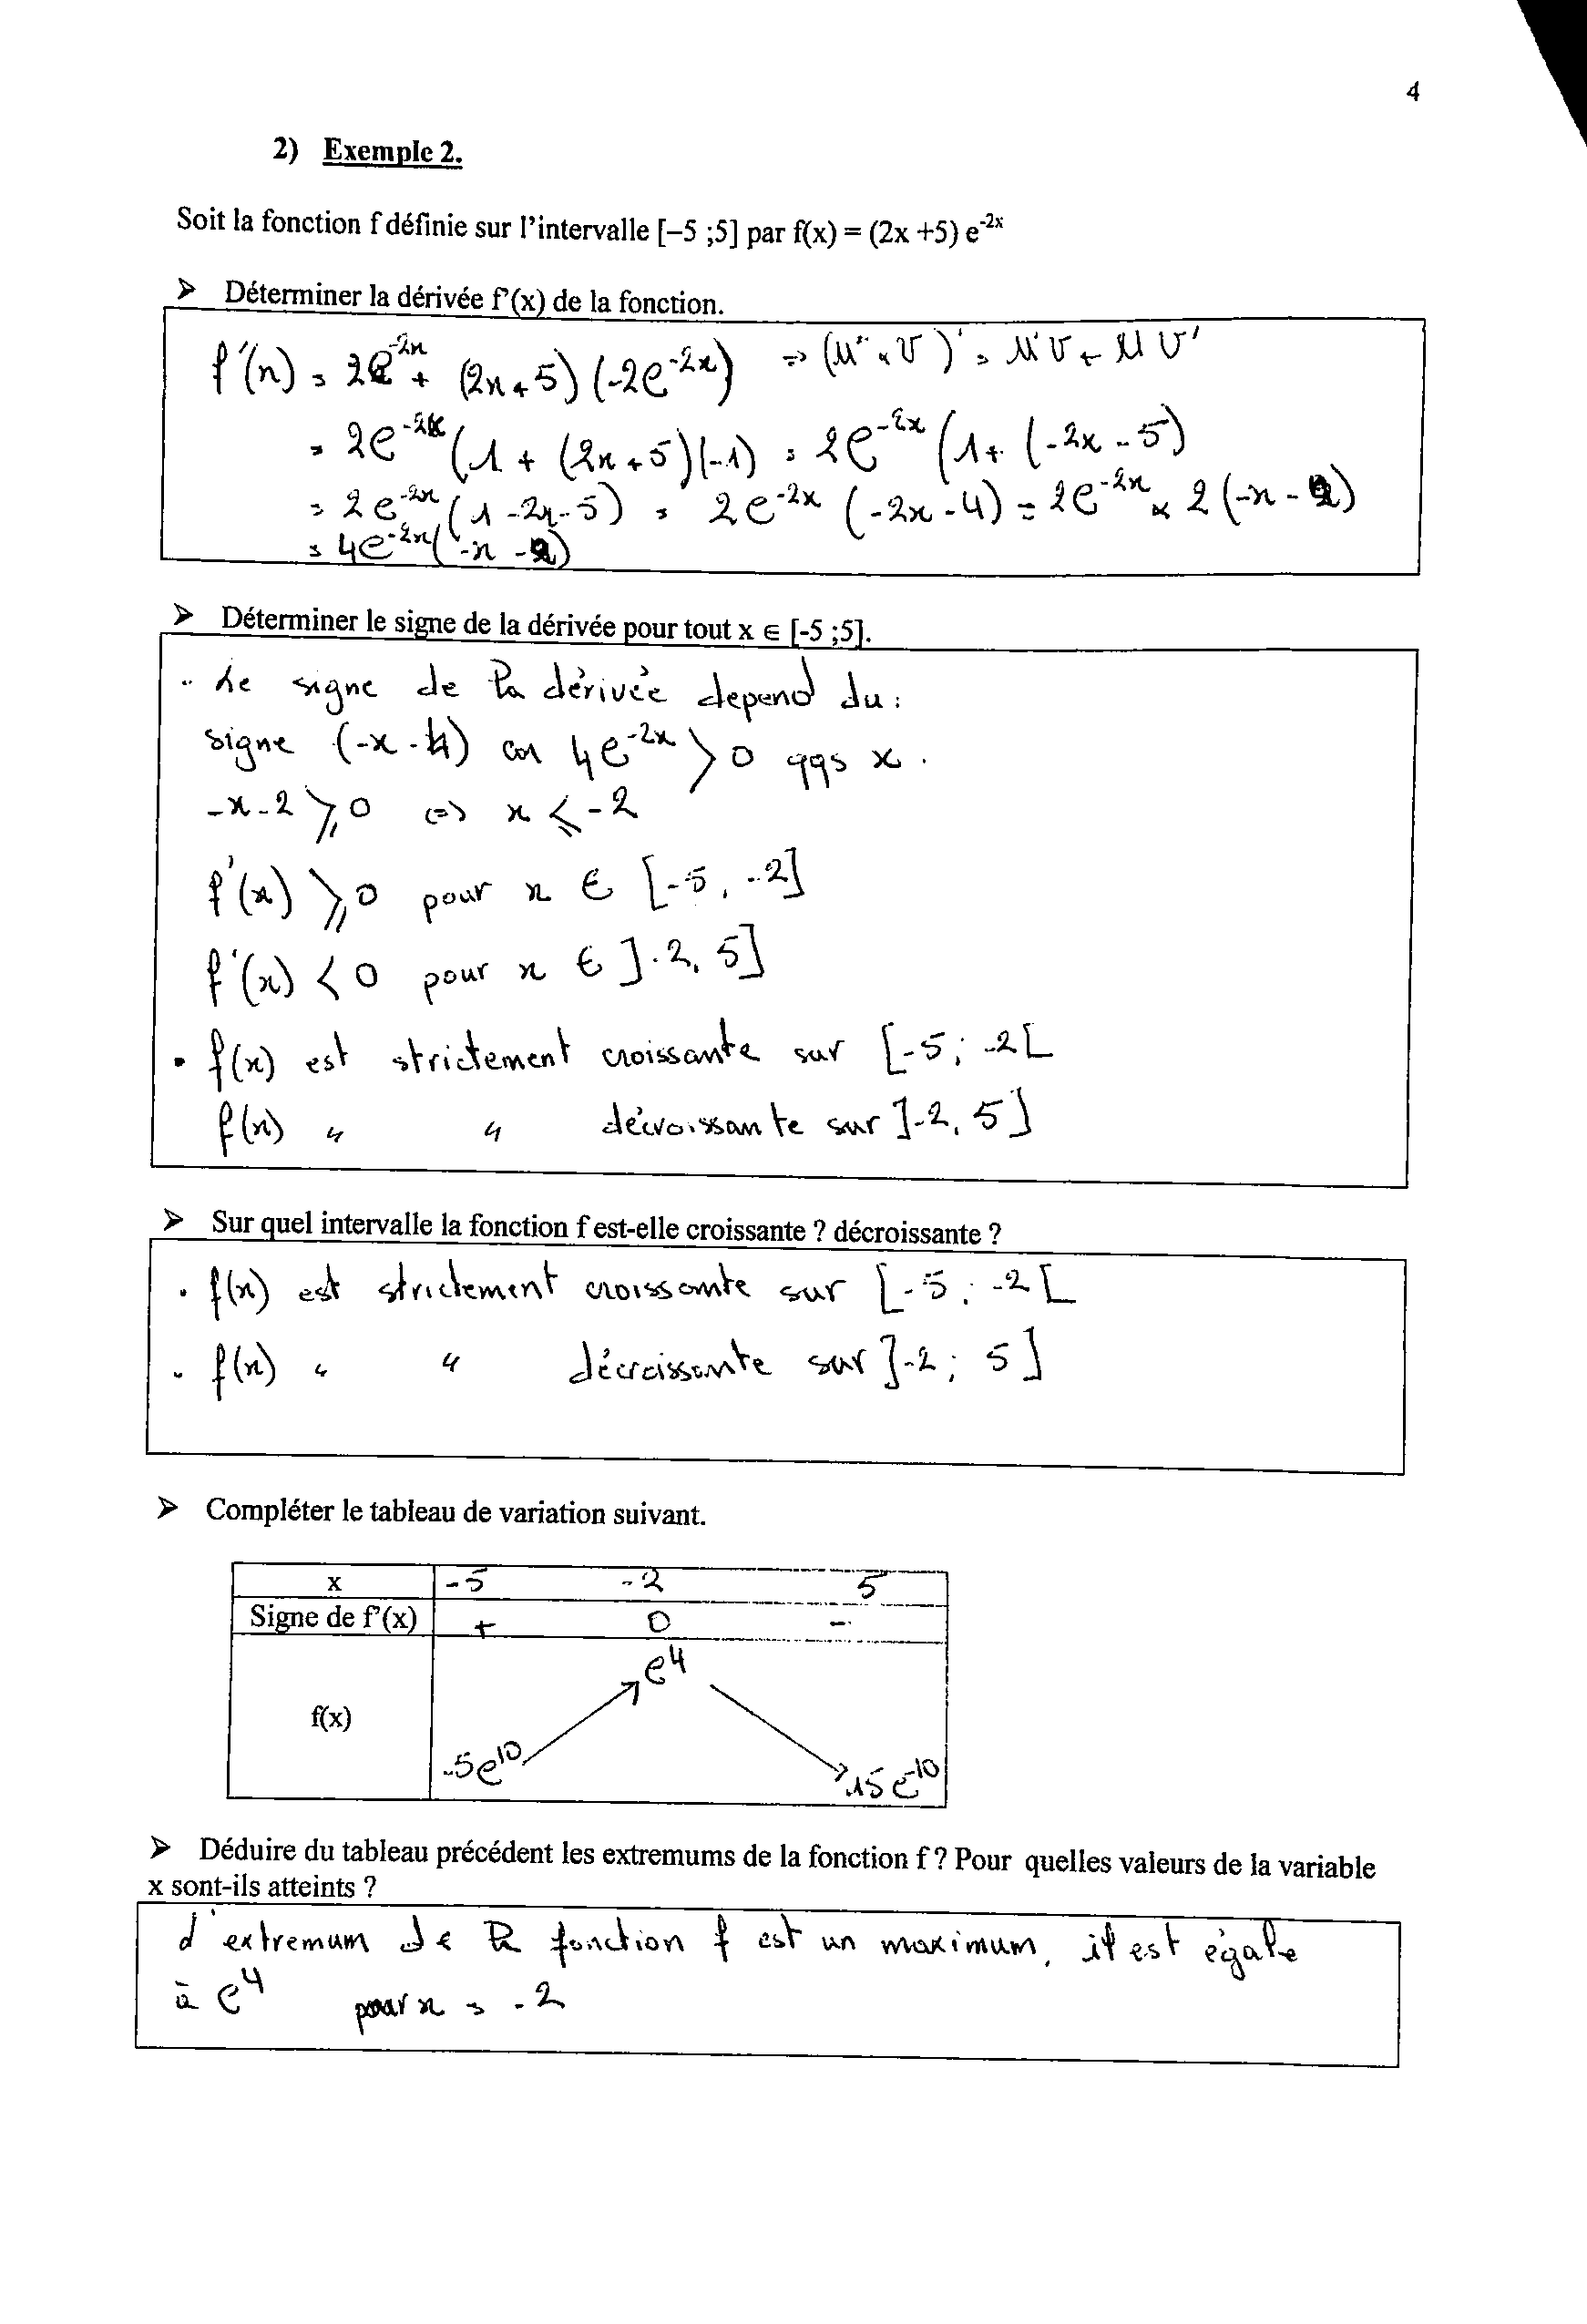 4
2) Exemple 2.
Soit la fonction f définie sur l'intervalle [–5 ;5] par f(x) = (2x +5) e^-2x
➢ Déterminer la dérivée f'(x) de la fonction.
f'(x) = 2e^-2x + (2x+5)(-2e^-2x) => (U × V)' = U'V + UV'
= 2e^-2x (1 + (2x+5)(-1) = 2e^-2x (1+ (-2x-5)
= 2e^-2x (1-2x-5) = 2e^-2x (-2x-4) = 2e^-2x × 2(-x-2)
= 4e^-2x (-x-2)
➢ Déterminer le signe de la dérivée pour tout x ∈ [-5 ;5].
. Le signe de la dérivée depend du :
signe (-x-4) car 4e^-2x > 0 qqs x .
-x-2 ⩾ 0 <=> x ⩽ -2
f'(x) ⩾ 0 pour x ∈ [-5, -2]
f'(x) < 0 pour x ∈ ]-2, 5]
• f(x) est strictement croissante sur [-5 ; -2[
f(x) " " décroissante sur ]-2, 5]
➢ Sur quel intervalle la fonction f est-elle croissante ? décroissante ?
• f(x) est strictement croissante sur [-5 ; -2[
• f(x) " " décroissante sur ]-2 ; 5]
➢ Compléter le tableau de variation suivant.
x -5 -2 5
Signe de f'(x) + 0 -
e^4
f(x)
-5e^10 15e^-10
➢ Déduire du tableau précédent les extremums de la fonction f ? Pour quelles valeurs de la variable
x sont-ils atteints ?
L'extremum de la fonction f est un maximum, il est égale
à e^4 pour x = -2